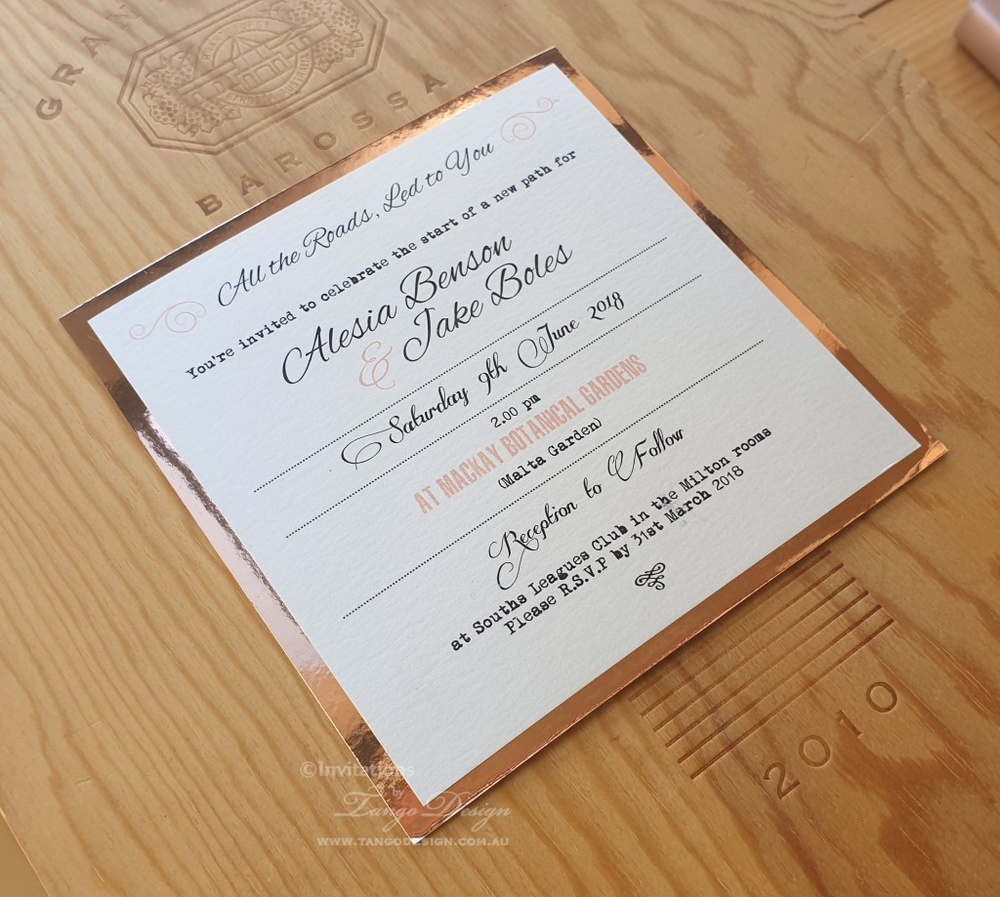 GRAN
BAROSSA
All the Roads, Led to You
You're invited to celebrate the start of a new path for
Alesia Benson
& Jake Boles
Saturday 9th June 2018
2.00 pm
AT MACKAY BOTANICAL GARDENS
(Malta Garden)
Reception to Follow
at Souths Leagues Club in the Milton rooms
Please R.S.V.P by 31st March 2018
2010
©Invitations
by
Tango Design
WWW.TANGODESIGN.COM.AU